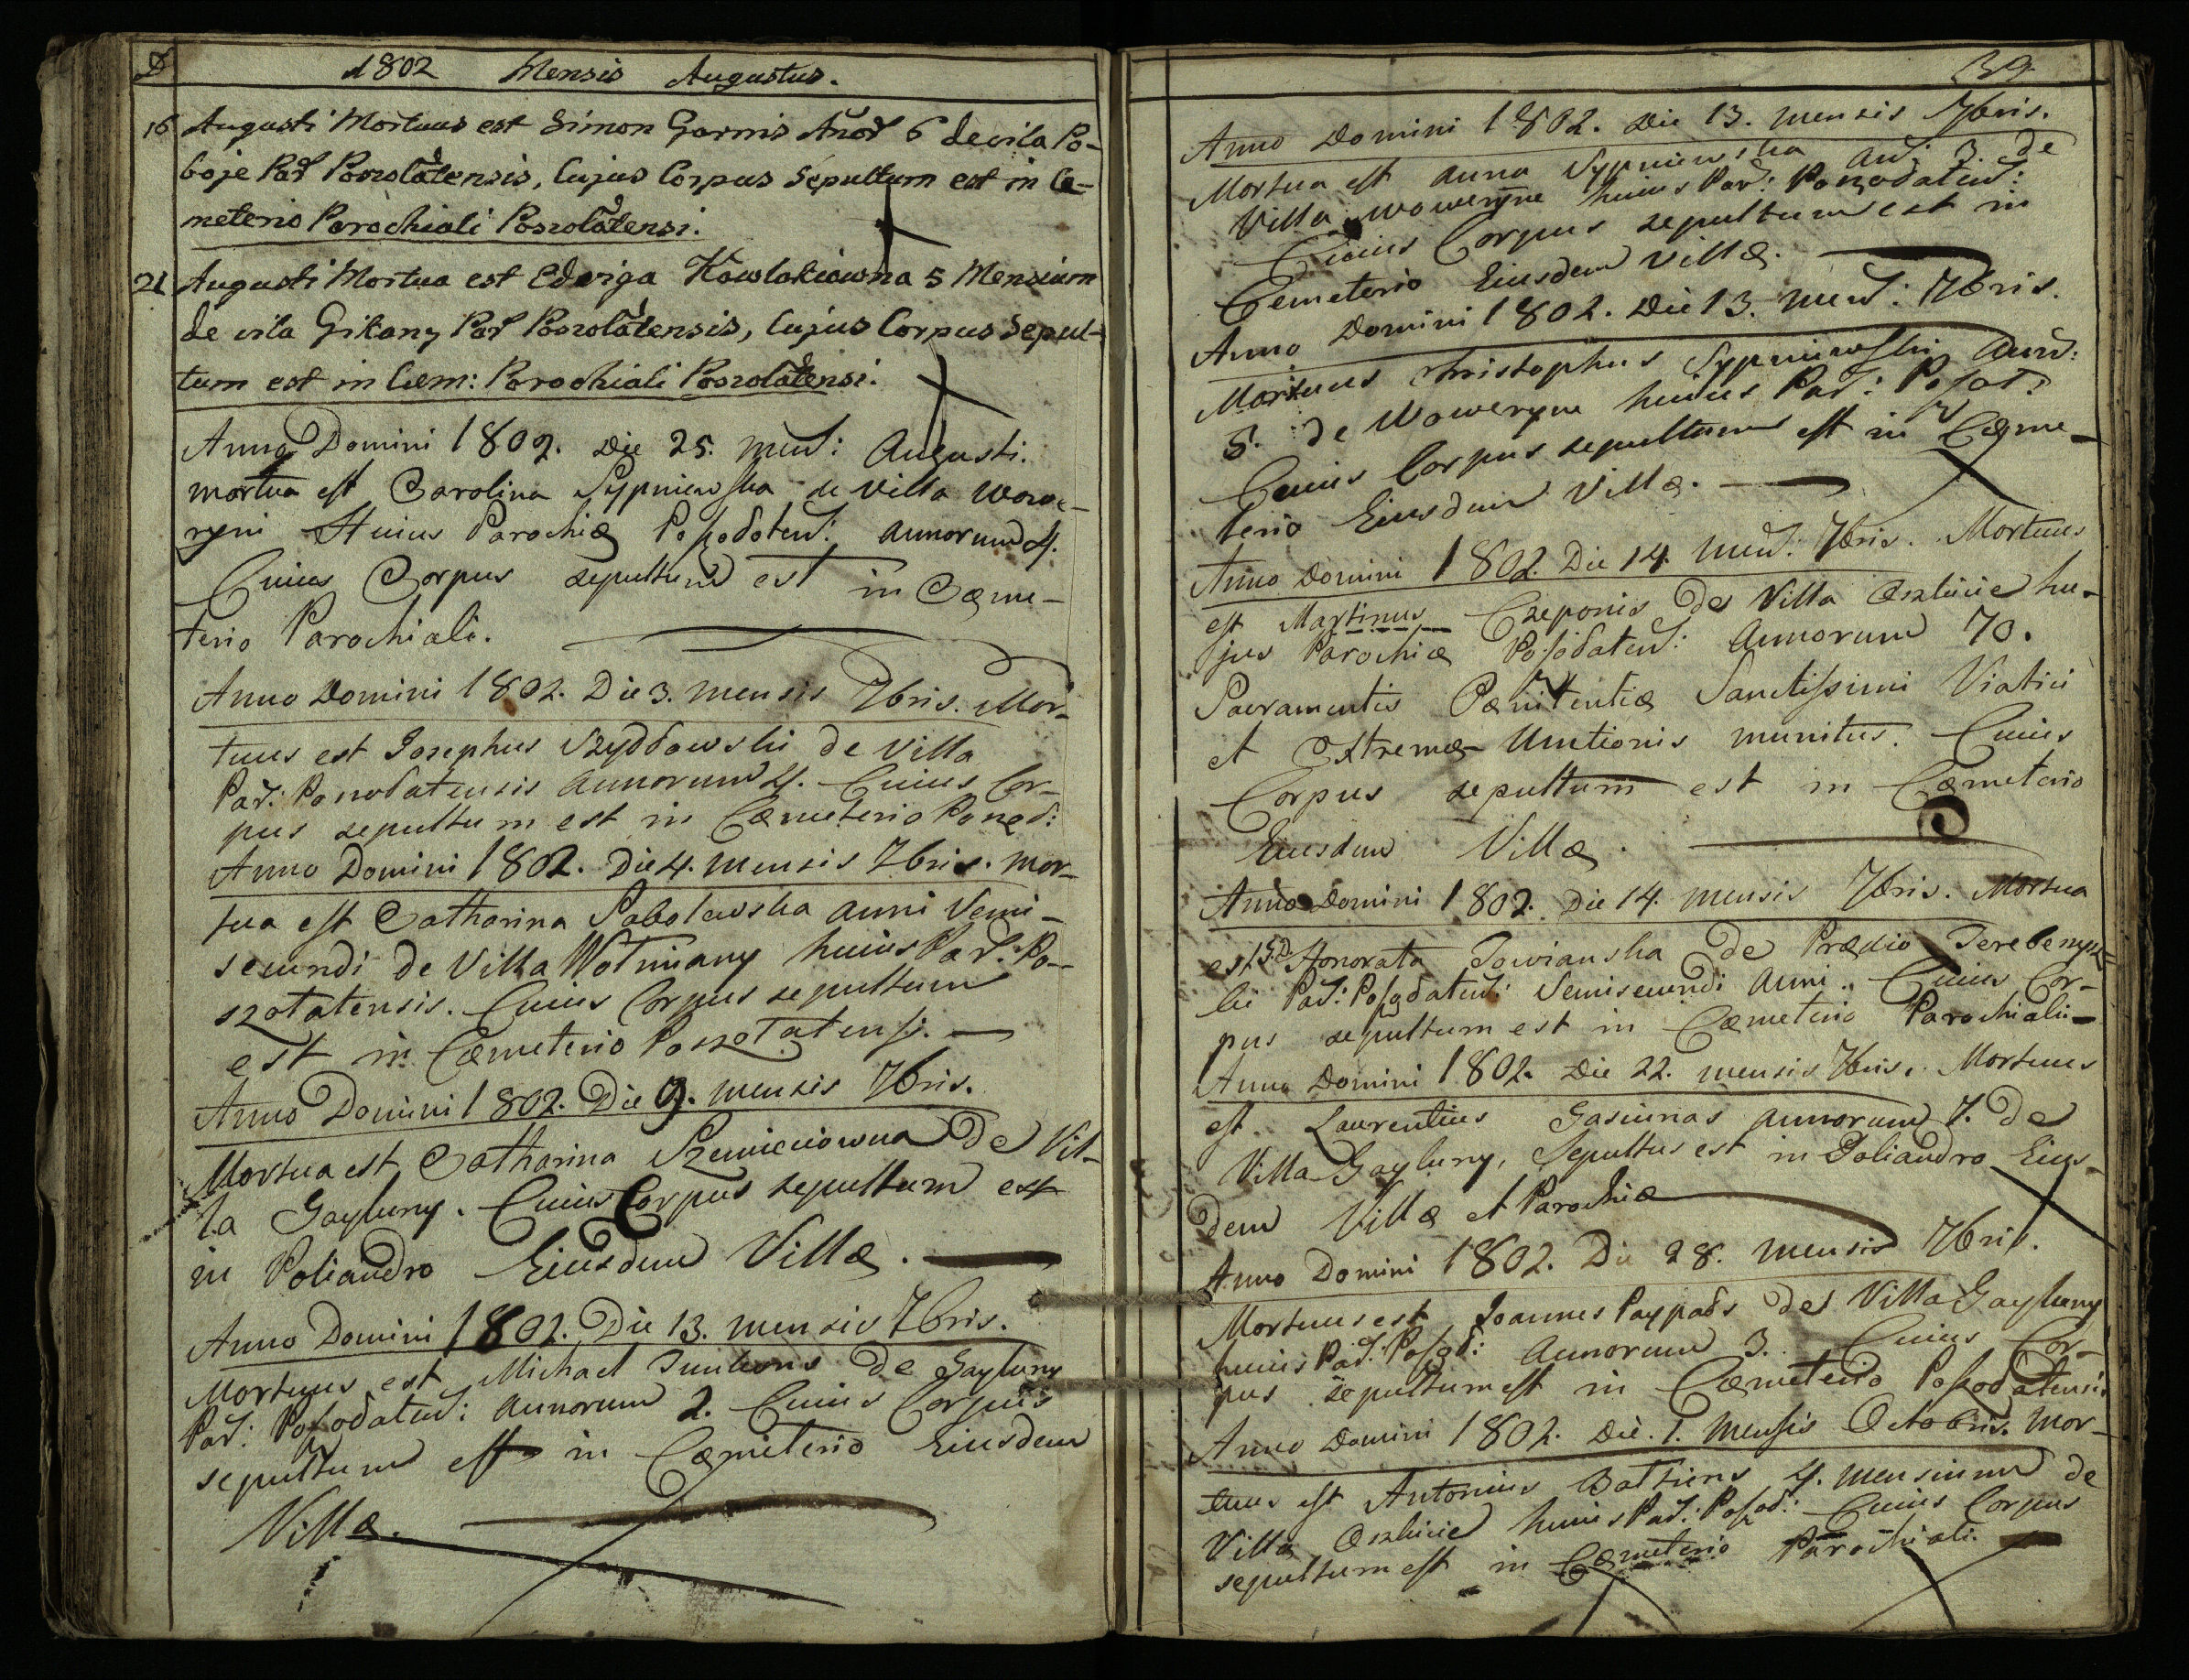 D
1802 Mensis Augustus.
16 Augusti Mortuus est Simon Garnis Anor 6 de vila Po-
boje Par Poszolatensis, Cujus Corpus Sepultum est in Ce-
meterio Parochiali Poszolatensi.
21 Augusti Mortua est Edviga Kowlakiowna 5 Mensium
de vila Gikany Par Poszolatensis, Cujus Corpus Sepul-
tum est in Caem: Parochiali Poszolatensi.
Anno Domini 1802. Die 25. Men: Augusti.
mortua est Carolina Sypniewska de Villa Wowe-
ryni Huius Parochiæ Poszodaten: annorum 4.
Cuius Corpus sepultum est in Cæme-
terio Parochiali.
Anno Domini 1802. Die 3. mensis 7bris. Mor-
tuus est Josephus Szydłowski de Villa
Par: Poszodatensis annorum 4. Cuius Cor-
pus sepultum est in Cæmeterio Poszod:
Anno Domini 1802. Die 4. mensis 7bris. mor-
tua est Catharina Sabolewska anni Semi-
secundi de Villa Wotniany huius Par: Po-
szotatensis. Cuius Corpus sepultum
est in Cæmeterio Poszotatensi.
Anno Domini 1802. Die 9. mensis 7bris.
Mortua est Catharina Szemieciowna de Vil-
la Gayluny. Cuius Corpus sepultum est
in Poliandro Eiusdem Villæ.
Anno Domini 1802. Die 13. mensis 7bris.
Mortuus est Michael de Gayluny
Par: Poszodaten: annorum 2. Cuius Corpus
sepultum est in Cæmeterio Eiusdem
Villæ.
39
Anno Domini 1802. Die 13. mensis 7bris.
Mortua est Anna Sypniewska an: 3. de
Villa Woweryne huius Par: Poszodaten:
Cuius Corpus sepultum est in
Cemeterio Eiusdem Villæ.
Anno Domini 1802. Die 13. men: 7bris.
Mortuus Christophus Sypniewski Ann:
5. de Woweryne huius Par: Poszot:
Cuius Corpus sepultum est in Cæme-
terio Eiusdem Villæ.
Anno Domini 1802. Die 14. men: 7bris. Mortuus
est Martinus Czeponis de Villa Oszkinie hu-
jus Parochiæ Poszodaten: Annorum 70.
Sacramentis Pœnitentiæ Sanctissimi Viatici
et Extremæ Unctionis munitus. Cuius
Corpus sepultum est in Cæmeterio
Eiusdem Villæ.
Anno Domini 1802. Die 14. mensis 7bris. Mortua
est Honorata Towianska de Prædio Terebenysz-
ki Par: Poszodaten: Semisecundi Anni. Cuius Cor-
pus sepultum est in Cæmeterio Parochiali
Anno Domini 1802. Die 22. mensis 7bris. Mortuus
est Laurentius Gasiunas annorum 7. De
Villa Gayluny, Sepultus est in Poliandro Eius-
dem Villæ et Parochiæ
Anno Domini 1802. Die 28. mensis 7bris.
Mortuus est Joannes Paypals de Villa Gayluny
huius Par: Poszod: Annorum 3. Cuius Cor-
pus sepultum est in Cæmeterio Poszodatensi
Anno Domini 1802. Die. 1. Mensis Octobris. mor-
tuus est Antonius Battiens 4. mensium de
Villa Oszkinie huius Par: Poszod: Cuius Corpus
sepultum est in Cæmeterio Parochiali.